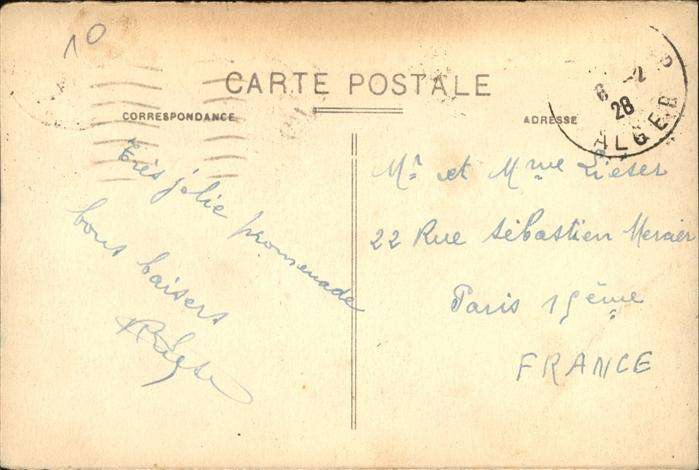 10
CARTE POSTALE
CORRESPONDANCE
ADRESSE
6 -2
28
ALGER
Très jolie promenade
bons baisers
Mr et Mme Lieser
22 Rue Sébastien Mercier
Paris 15ème
FRANCE